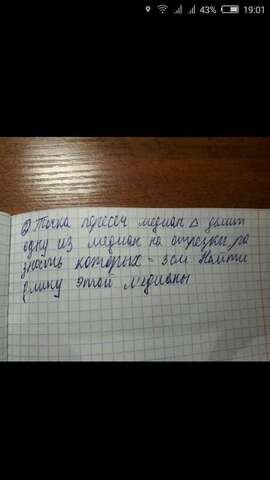 43% 19:01
2) Точка пересеч медиан △ делит
одну из медиан на отрезки, ра
зность которых = 3 см. Найти
длину этой медианы